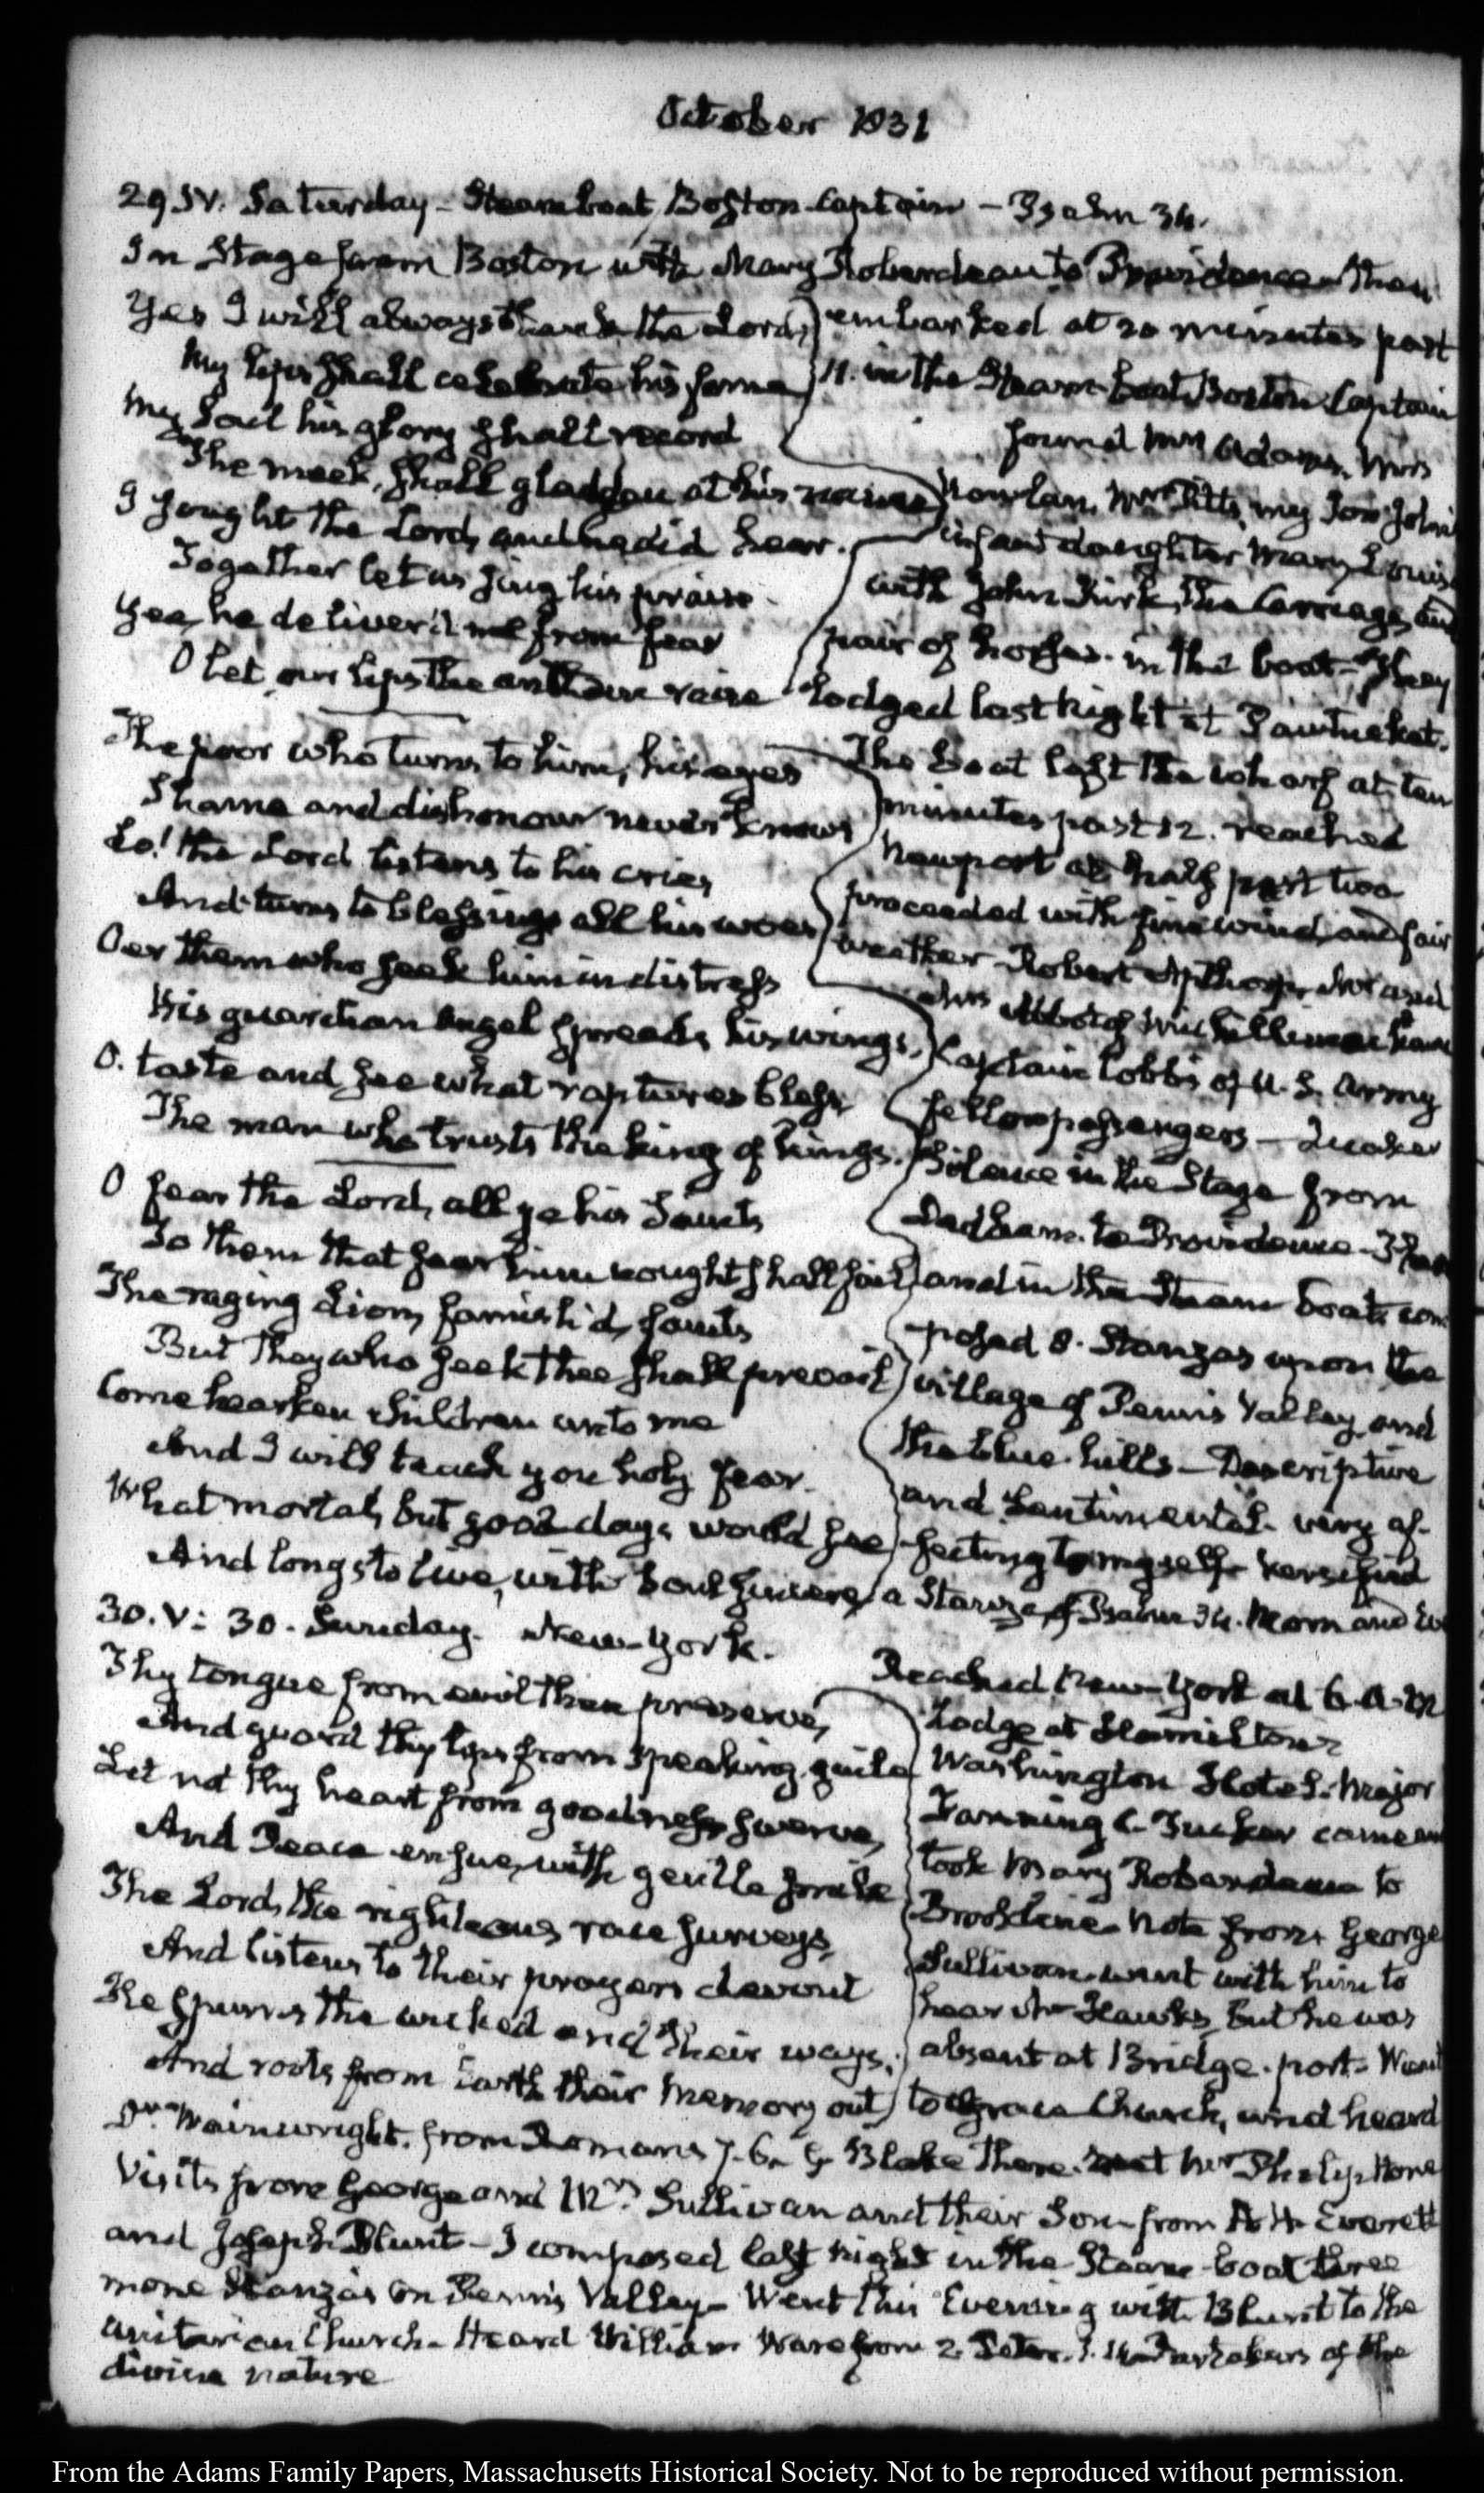 October 1831
29. IV. Saturday - Steamboat Boston Captain - Psalm 34.
In Stage from Boston with Mary Roberdeau to Providence - Then
Yes I will always thank the Lord,
My lips shall celebrate his fame
My Soul his glory shall record
The meek, shall gladden at his name
I sought the Lord, and he did hear.
Together let us sing his praise.
Yea, he deliver'd me from fear
O let our lips the anthem raise
The poor who turns to him, his eyes
Shame and dishonour never knows
Lo! the Lord listens to his cries,
And turns to blessings all his woes
Oer them who seek him in distress
His guardian Angel spreads his wings.
O. taste and see what raptures bless
The man who trusts the king of kings.
O fear the Lord, all ye his Saints
To them that fear him nought shall fail
The raging Lion, famish'd, faints
But they who seek thee shall prevail
Come hearken children unto me
And I will teach you holy fear.
What mortal, but good days would see
And longs to live, with Soul sincere
embarked at 20 minutes past
11. in the Steam-boat Boston Captain
found Mrs Adams, Mrs
Nowlan, Mrs Pitts, my Son John's
infant daughter Mary Louisa
with John Kirk, the Carriage, and
pair of horses in the boat - They
lodged last night at Pawtucket.
The boat left the wharf at ten
minutes past 12. reached
Newport at half past two
proceeded with fine wind, and fair
weather - Robert Apthorp, Mr and
Mrs Abbot of Michillimackinac
Captain Cobbs of U.S. Army
fellow passengers - Quaker
Silence in the Stage from
Dedham to Providence - I there
and in the Steam boat com
posed 8. Stanzas upon the
village of Penn's Valley, and
the blue hills - Descriptive
and Sentimental. very af-
fecting to myself - Versified
a Stanza of Psalm 34. Morn and Ev
30. V: 30. Sunday. New-York.
Thy tongue from evil then preserve,
And guard thy lips from speaking guile
Let not thy heart from goodness swerve,
And Peace ensue, with gentle smile
The Lord, the righteous race surveys,
And listens to their prayers devout
He spurns the wicked and their ways;
And roots from Earth their memory out
Reached New-York at 6. A.M
Lodge at Hamilton's
Washington Hotel. Major
Fanning C. Tucker came and
took Mary Roberdeau to
Brookline - Note from George
Sullivan. went with him to
hear Mr Hawks, but he was
absent at Bridge-port - Went
to Grace Church, and heard
Dr. Wainwright. from Romans 7. 6. G Blake there. met Mr Philip Hone
Visits from George and Mrs. Sullivan and their Son - from A H Everett
and Joseph Blunt - I composed last night in the Steam-boat three
more Stanzas on Penn's Valley - Went this Evening with Blunt to the
Unitarian Church - Heard William Ware from 2. Peter. 1. 14 Partakers of the
divine nature
From the Adams Family Papers, Massachusetts Historical Society. Not to be reproduced without permission.